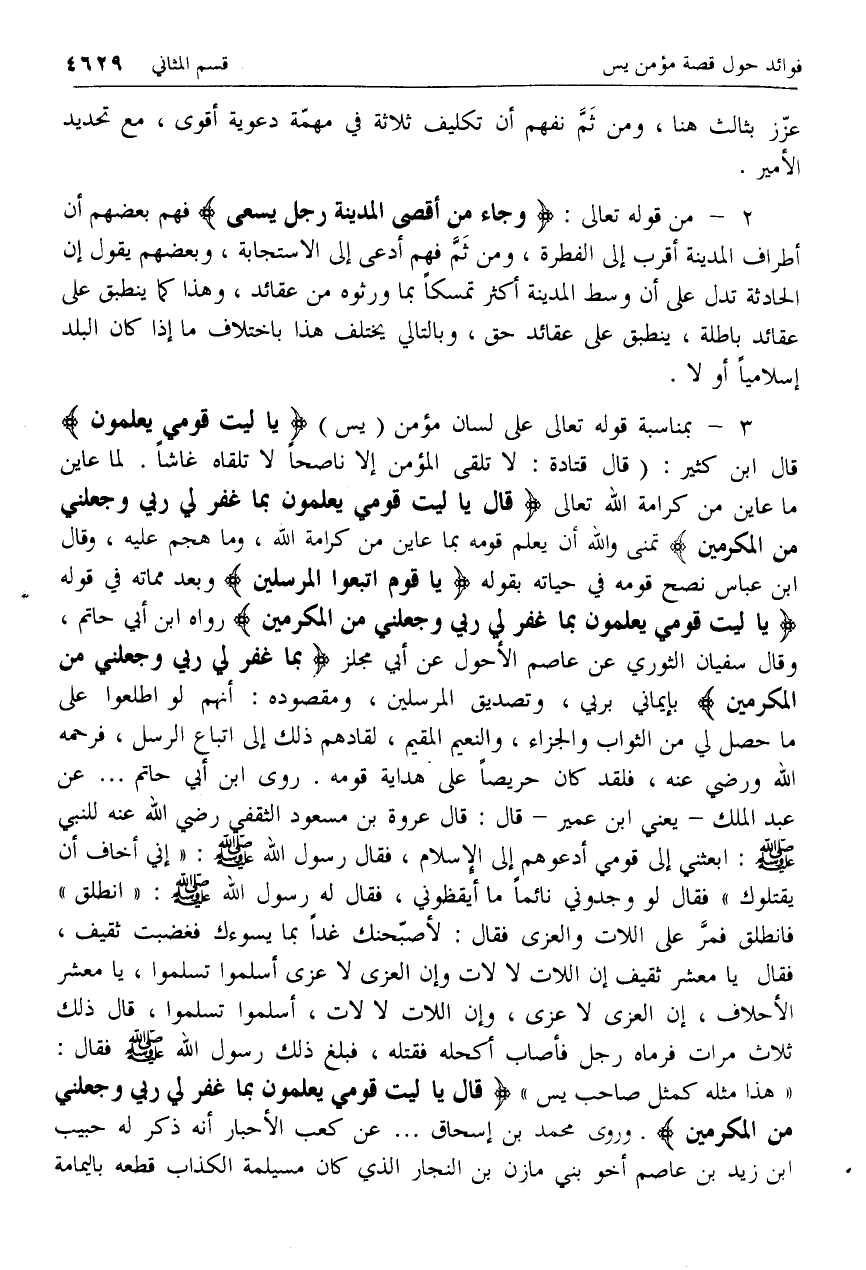 فوائد حول قصة مؤمن يس قسم المثاني ٤٦٢٩
عزّز بثالث هنا ، ومن ثَمَّ نفهم أن تكليف ثلاثة في مهمّة دعوية أقوى ، مع تحديد
الأمير .
٢ – من قوله تعالى : ﴿ وجاء من أقصى المدينة رجل يسعى ﴾ فهم بعضهم أن
أطراف المدينة أقرب إلى الفطرة ، ومن ثَمَّ فهم أدعى إلى الاستجابة ، وبعضهم يقول إن
الحادثة تدل على أن وسط المدينة أكثر تمسكاً بما ورثوه من عقائد ، وهذا كما ينطبق على
عقائد باطلة ، ينطبق على عقائد حق ، وبالتالي يختلف هذا باختلاف ما إذا كان البلد
إسلامياً أو لا .
٣ – بمناسبة قوله تعالى على لسان مؤمن ( يس ) ﴿ يا ليت قومي يعلمون ﴾
قال ابن كثير : ( قال قتادة : لا تلقى المؤمن إلا ناصحاً لا تلقاه غاشاً . لما عاين
ما عاين من كرامة الله تعالى ﴿ قال يا ليت قومي يعلمون بما غفر لي ربي وجعلني
من المكرمين ﴾ تمنى والله أن يعلم قومه بما عاين من كرامة الله ، وما هجم عليه ، وقال
ابن عباس نصح قومه في حياته بقوله ﴿ يا قوم اتبعوا المرسلين ﴾ وبعد مماته في قوله
﴿ يا ليت قومي يعلمون بما غفر لي ربي وجعلني من المكرمين ﴾ رواه ابن أبي حاتم ،
وقال سفيان الثوري عن عاصم الأحول عن أبي مجلز ﴿ بما غفر لي ربي وجعلني من
المكرمين ﴾ بإيماني بربي ، وتصديق المرسلين ، ومقصوده : أنهم لو اطلعوا على
ما حصل لي من الثواب والجزاء ، والنعيم المقيم ، لقادهم ذلك إلى اتباع الرسل ، فرحمه
الله ورضي عنه ، فلقد كان حريصاً على هداية قومه . روى ابن أبي حاتم ... عن
عبد الملك – يعني ابن عمير – قال : قال عروة بن مسعود الثقفي رضي الله عنه للنبي
ﷺ : ابعثني إلى قومي أدعوهم إلى الإسلام ، فقال رسول الله ﷺ : « إني أخاف أن
يقتلوك » فقال لو وجدوني نائماً ما أيقظوني ، فقال له رسول الله ﷺ : « انطلق »
فانطلق فمرَّ على اللات والعزى فقال : لأصبّحنك غداً بما يسوءك فغضبت ثقيف ،
فقال يا معشر ثقيف إن اللات لا لات وإن العزى لا عزى أسلموا تسلموا ، يا معشر
الأحلاف ، إن العزى لا عزى ، وإن اللات لا لات ، أسلموا تسلموا ، قال ذلك
ثلاث مرات فرماه رجل فأصاب أكحله فقتله ، فبلغ ذلك رسول الله ﷺ فقال :
« هذا مثله كمثل صاحب يس » ﴿ قال يا ليت قومي يعلمون بما غفر لي ربي وجعلني
من المكرمين ﴾ . وروى محمد بن إسحاق ... عن كعب الأحبار أنه ذكر له حبيب
ابن زيد بن عاصم أخو بني مازن بن النجار الذي كان مسيلمة الكذاب قطعه باليمامة